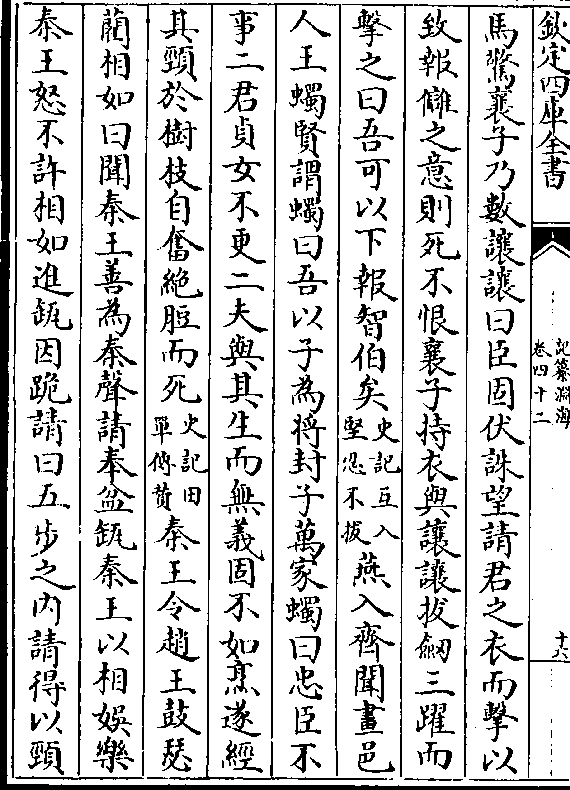 欽定四庫全書
記纂淵海
卷四十二
十六
馬驚襄子乃數讓讓曰臣固伏誅望請君之衣而擊以
致報讎之意則死不恨襄子持衣與讓讓拔劒三躍而
擊之曰吾可以下報智伯矣史記互入堅忍不拔燕入齊聞畫邑
人王蠋賢謂蠋曰吾以子為将封子萬家蠋曰忠臣不
事二君貞女不更二夫與其生而無義固不如烹遂經
其頸於樹枝自奮絶脰而死史記田單傳贊秦王令趙王鼓瑟
藺相如曰聞秦王善為秦聲請奉盆缻秦王以相娛樂
秦王怒不許相如進缻因跪請曰五步之内請得以頸